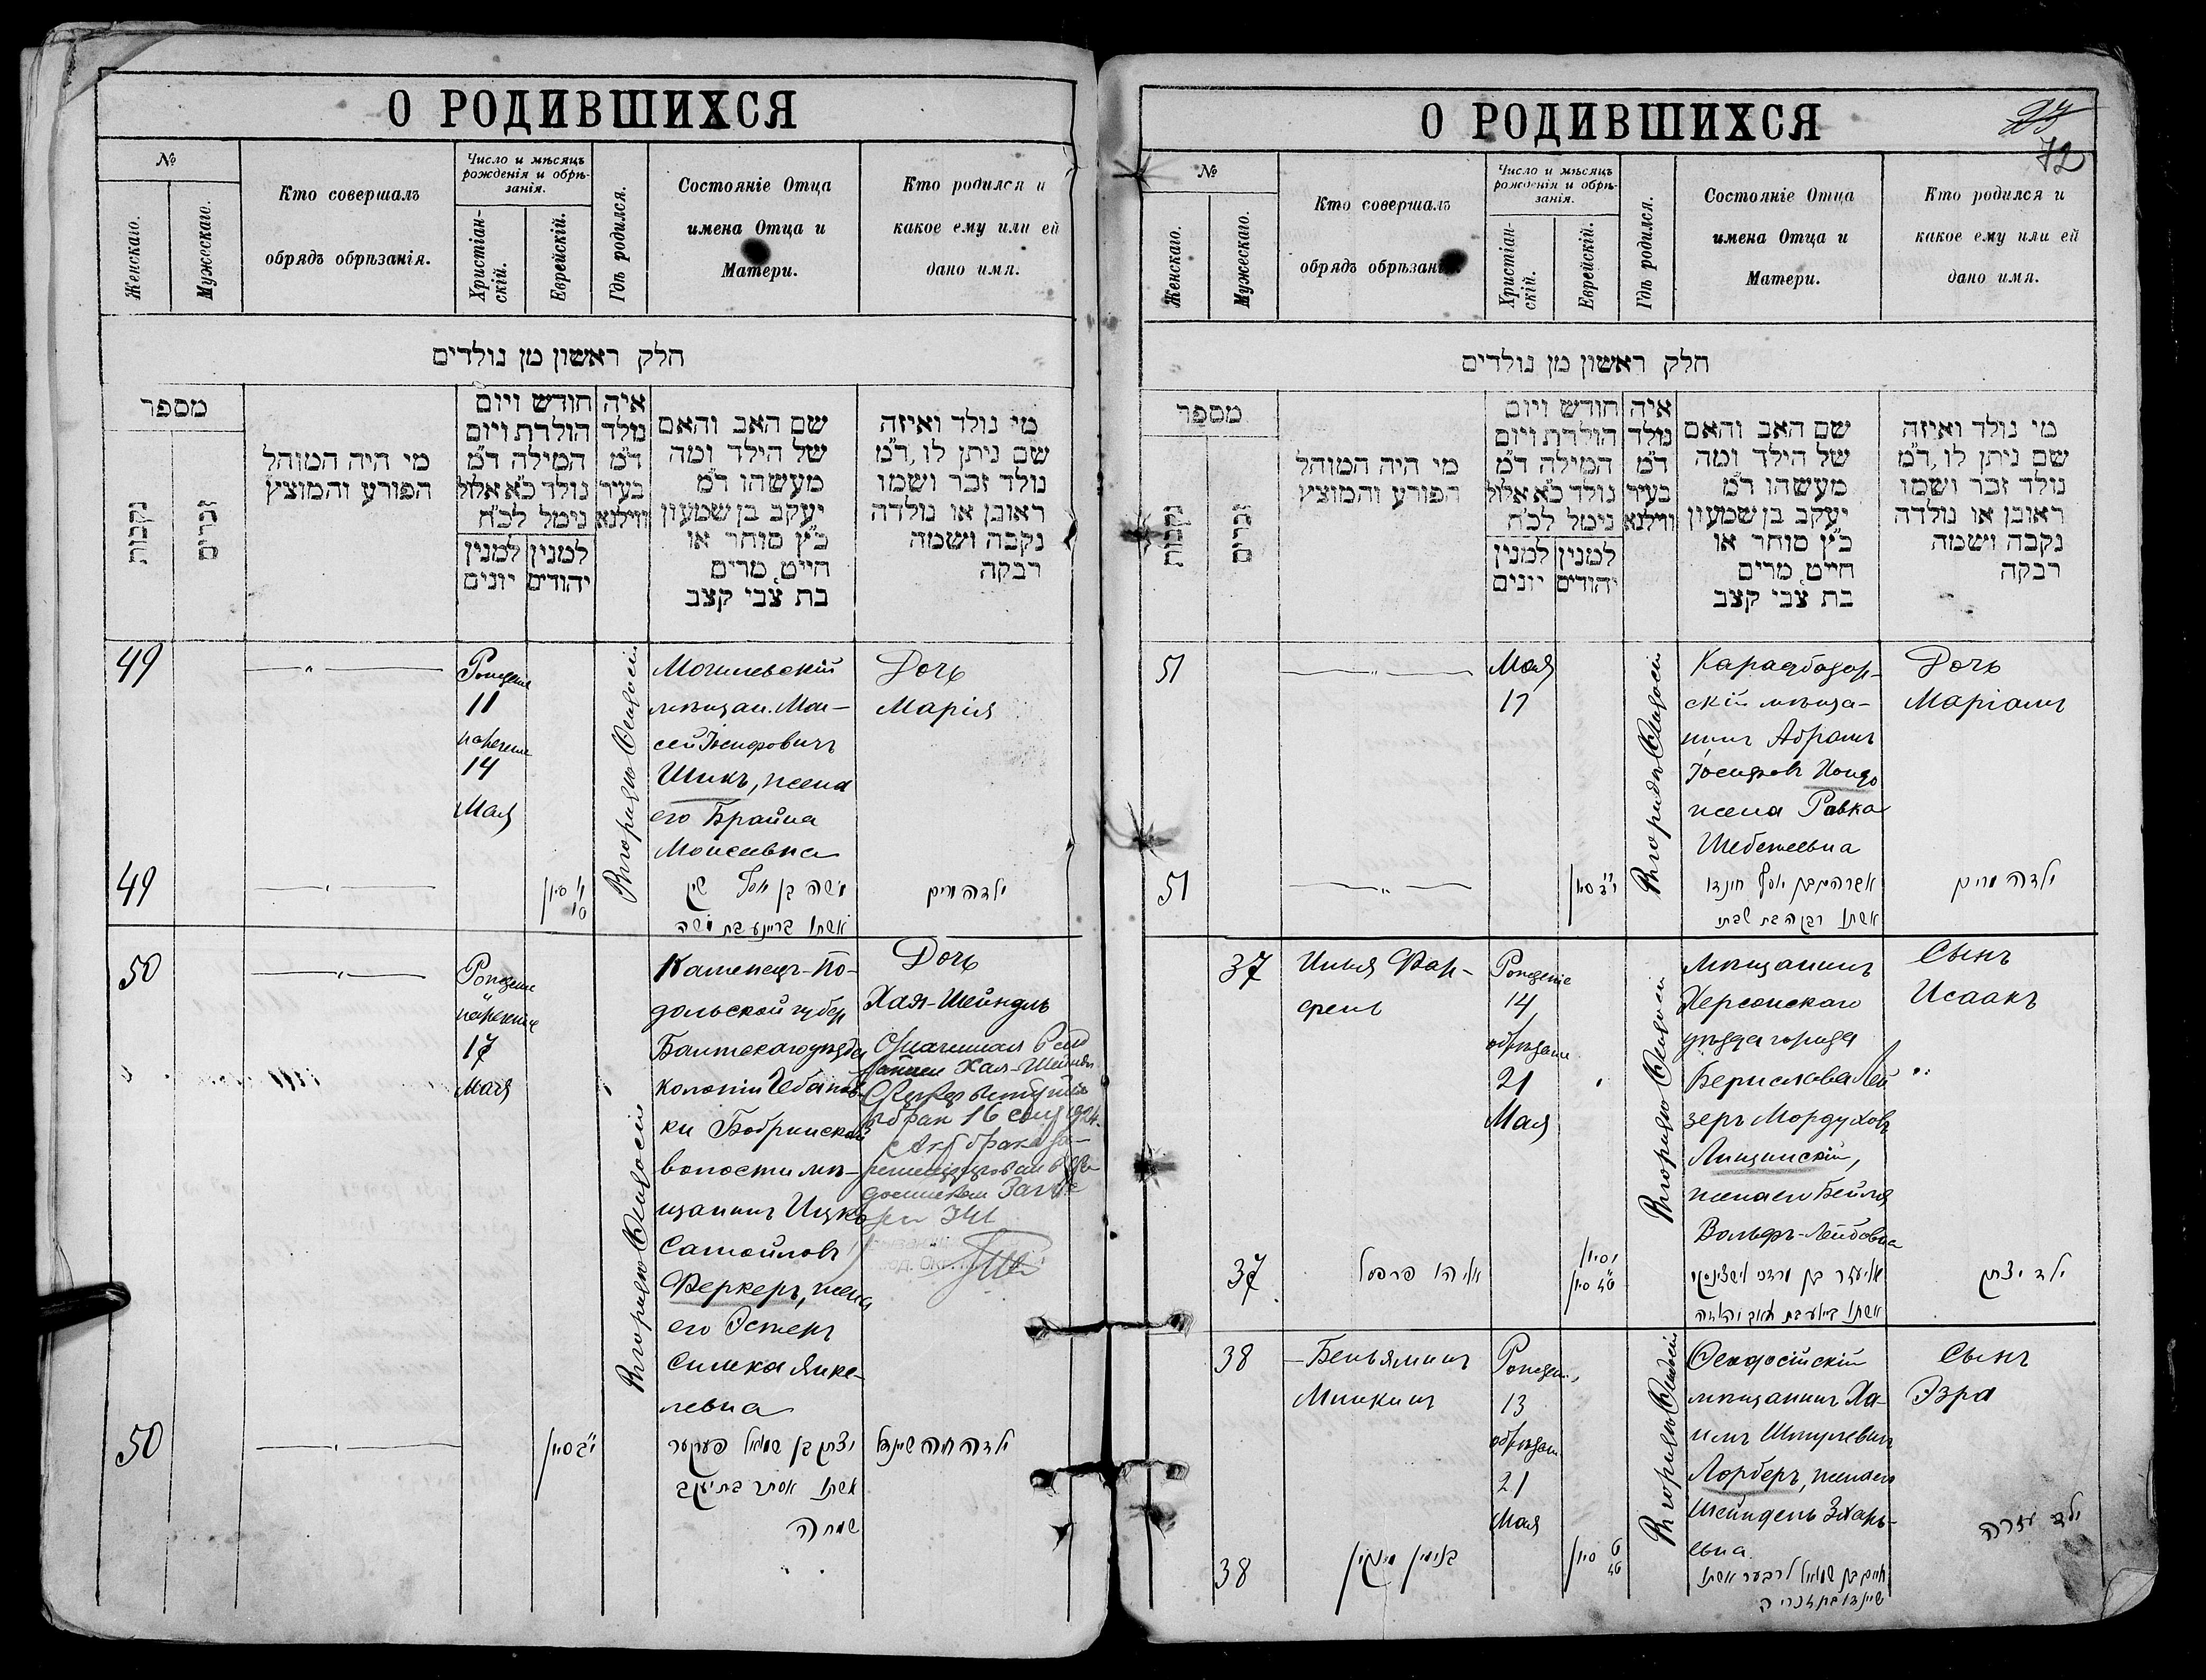 О РОДИВШИХСЯ
№
Женскаго.
Мужескаго.
Кто совершалъ
обрядъ обрѣзанія.
Число и мѣсяцъ
рожденія и обрѣ-
занія.
Христіан-
скій.
Еврейскій.
Гдѣ родился.
Состояніе Отца
имена Отца и
Матери.
Кто родился и
какое ему или ей
дано имя.
חלק ראשון מן נולדים
מספר
נקבות
זכרים
מי היה המוהל
הפורע והמוצץ
חודש ויום
הולדת ויום
המילה ד"מ
נולד כ"א אלול
נימל לכ"ח
למנין יונים
למנין יהודים
איה
נולד
ד"מ
בעיר
ווילנא
שם האב והאם
של הילד ומה
מעשהו ד"מ
יעקב בן שמעון
כ"ץ סוחר או
חייט, מרים
בת צבי קצב
מי נולד ואיזה
שם ניתן לו, ד"מ
נולד זכר ושמו
ראובן או נולדה
נקבה ושמה
רבקה
49
Рожденіе
11
нареченіе
14
Мая
Въ городѣ Ѳеодосіи
Могилевскій
мѣщан. Мои-
сей Іосифовичъ
Шикъ, жена
его Брайна
Моисеевна
Дочь
Марія
49
משה בן יוסף שיק
אשתו בריינע בת משה
ילדה מרים
50
Рожденіе
и
нареченіе
17
Мая
Въ городѣ Ѳеодосіи
Каменец-По-
дольской губер
Балтскаго уѣзда
колоніи Чебанов-
ки Бобринской
волости мѣ-
щанинъ Ицко
Самойловъ
Феркеръ, жена
его Эстеръ
Симка Янке-
левна
Дочь
Хая-Шейндль
50
י"ב סיון
יצחק בן שמואל פערקער
אשתו אסתר בת יעקב
שמחה
ילדה חיה שיינדל
О РОДИВШИХСЯ
72
№
Женскаго.
Мужескаго.
Кто совершалъ
обрядъ обрѣзанія.
Число и мѣсяцъ
рожденія и обрѣ-
занія.
Христіан-
скій.
Еврейскій.
Гдѣ родился.
Состояніе Отца
имена Отца и
Матери.
Кто родился и
какое ему или ей
дано имя.
חלק ראשון מן נולדים
מספר
נקבות
זכרים
מי היה המוהל
הפורע והמוצץ
חודש ויום
הולדת ויום
המילה ד"מ
נולד כ"א אלול
נימל לכ"ח
למנין יונים
למנין יהודים
איה
נולד
ד"מ
בעיר
ווילנא
שם האב והאם
של הילד ומה
מעשהו ד"מ
יעקב בן שמעון
כ"ץ סוחר או
חייט, מרים
בת צבי קצב
מי נולד ואיזה
שם ניתן לו, ד"מ
נולד זכר ושמו
ראובן או נולדה
נקבה ושמה
רבקה
51
Мая
17
Въ городѣ Ѳеодосіи
Карасубазар-
скій мѣща-
нинъ Абрамъ
Іосифовъ
жена Ривка
Шебетеевна
Дочь
Маріамъ
51
י"ב סיון
אברהם בן יוסף חונדו
אשתו רבקה בת שבתי
ילדה מרים
37
Илья Фар-
фель
Рожденіе
14
обрѣзаніе
21
Мая
Въ городѣ Ѳеодосіи
Мѣщанинъ
Херсонскаго
уѣзда города
Берислава Лей
зеръ Мордуховъ
Лищинскій,
жена его Бейля
Вольфъ-Лейбовна
Сынъ
Исаакъ
37
אליהו פרפל
ט"ז סיון
אליעזר בן מרדכי לישצינסקי
ילד יצחק
38
Беньяминъ
Минкинъ
Рожден.
13
обрѣзан
21
Мая
Въ городѣ Ѳеодосіи
Ѳеодосійскій
мѣщанинъ Ха-
имъ Шмулевичъ
Лорберъ, жена его
Шейндель Зхарь-
евна
Сынъ
Эзра
38
בנימין מינקין
ט סיון
ט"ז
חיים בן שמואל לרבער אשתו
שיינדל בת זכריה
ילד עזרה